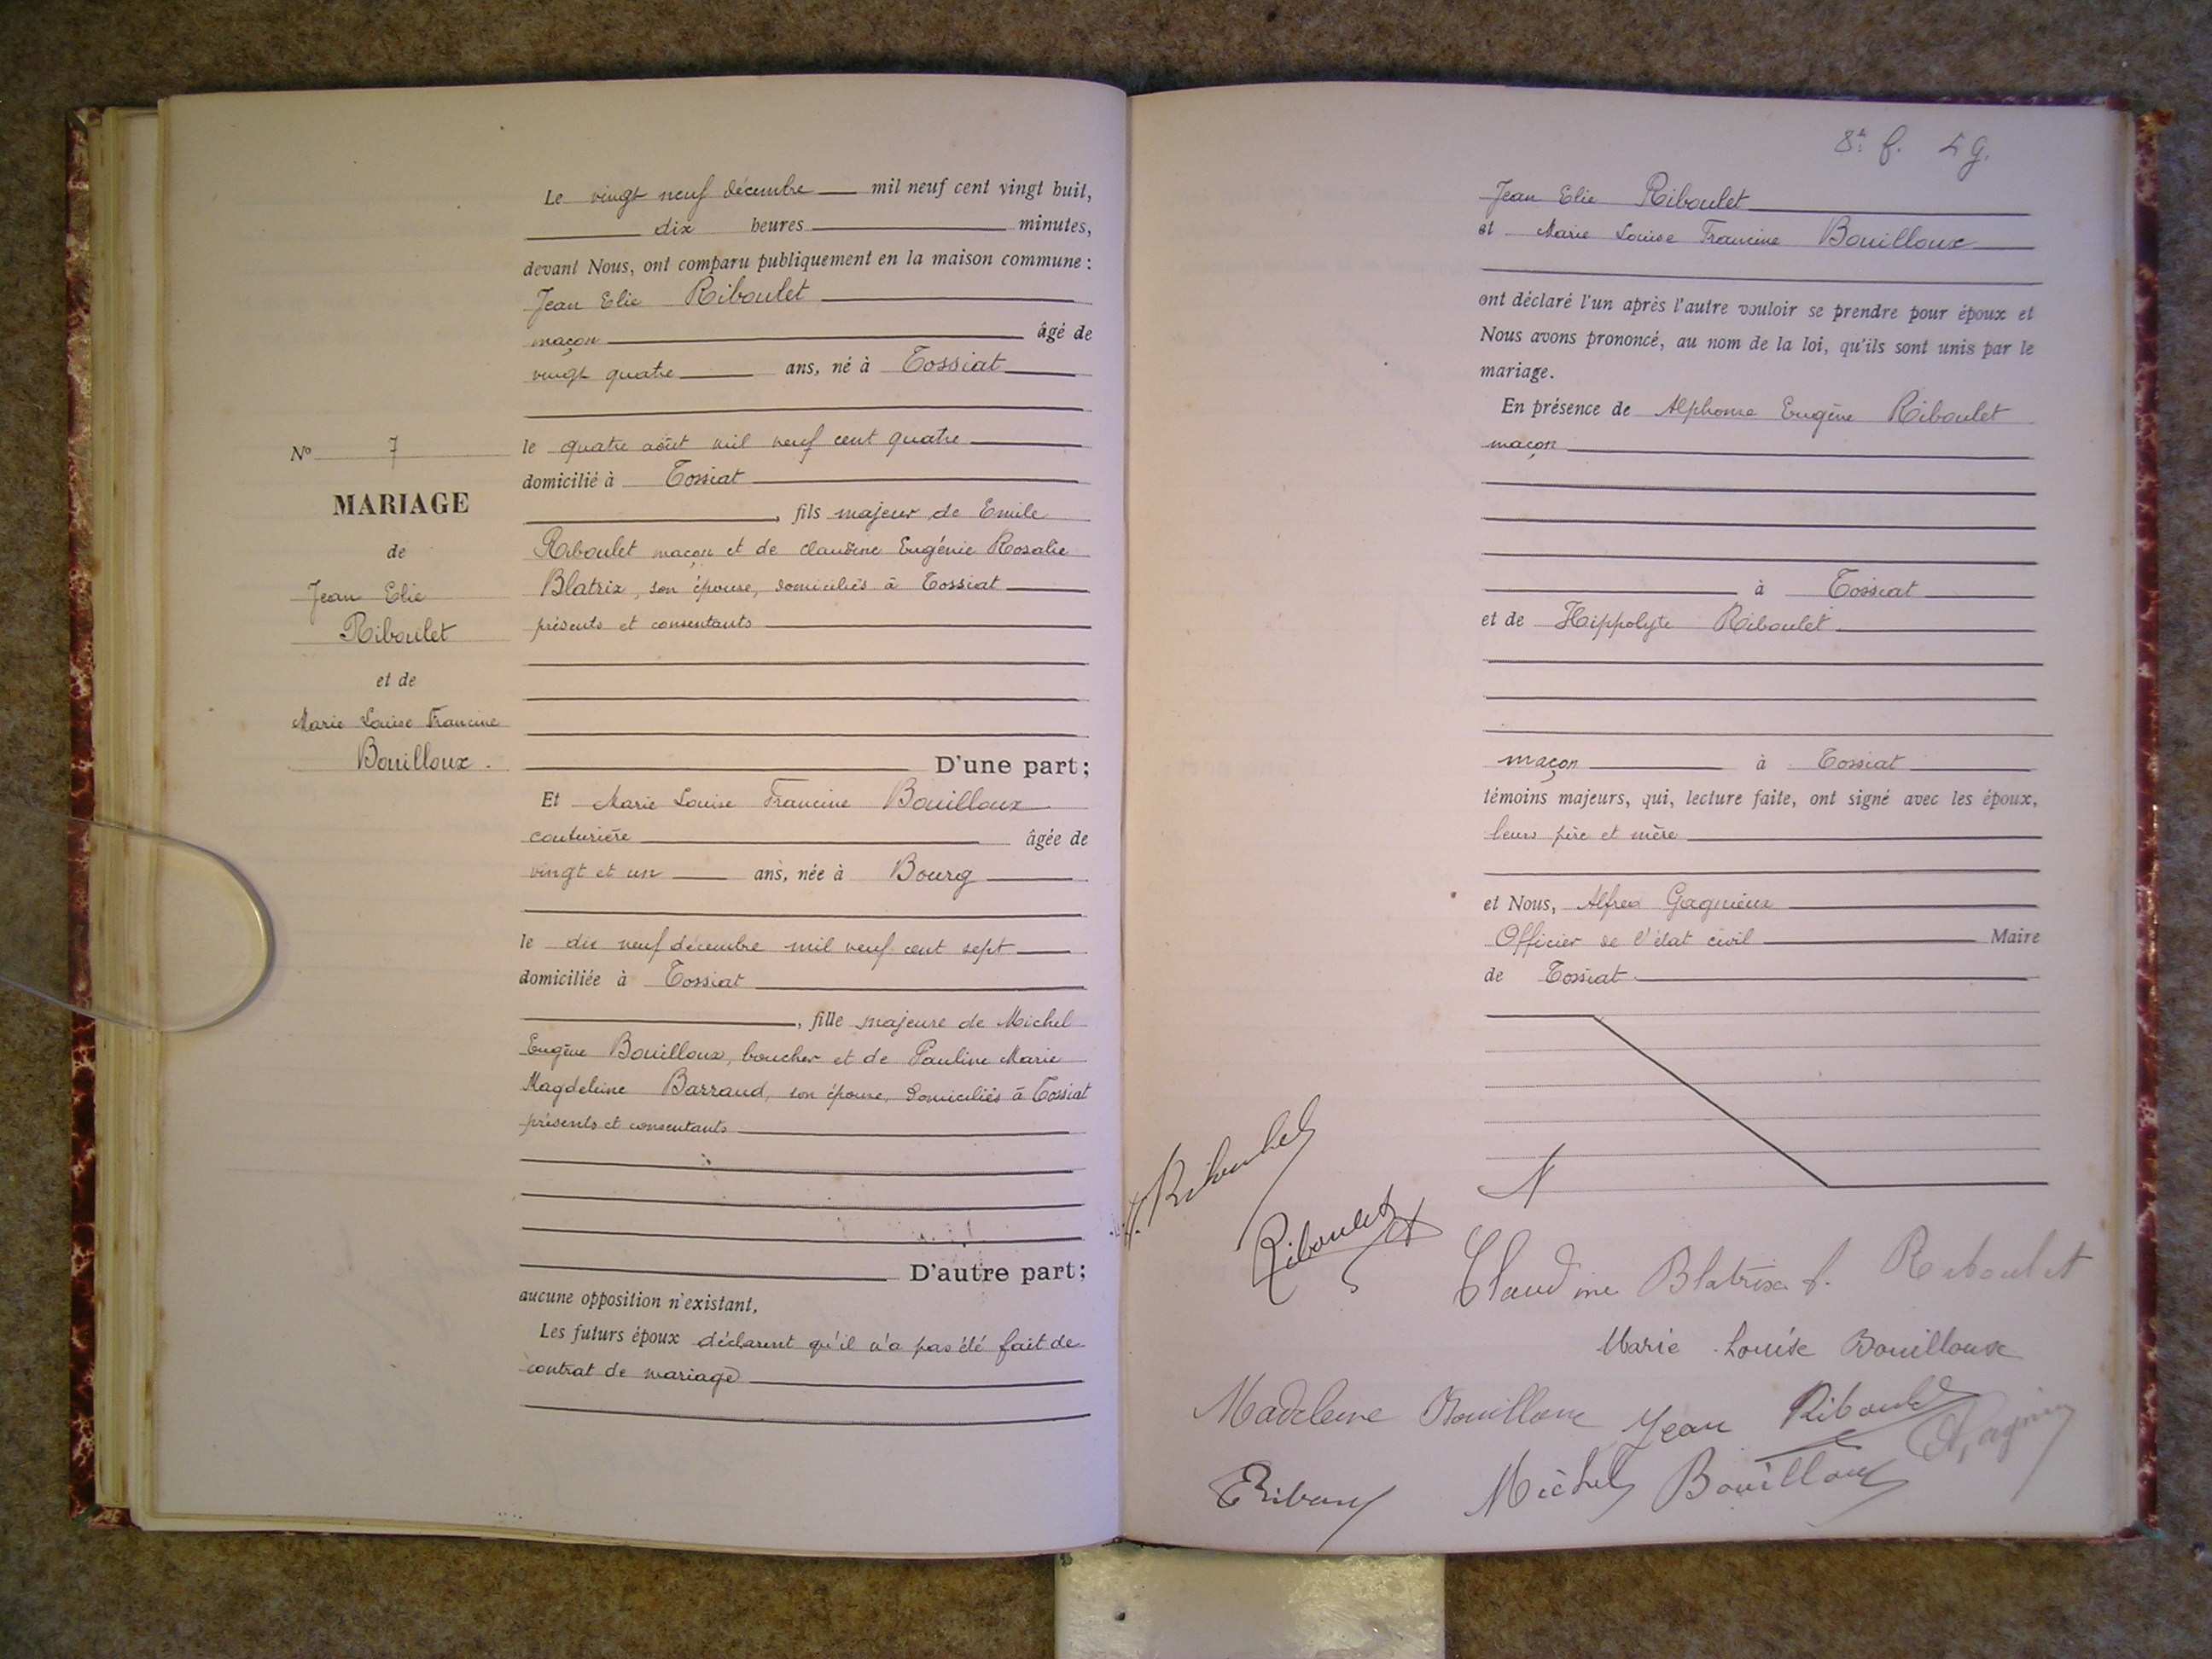 Le vingt neuf décembre mil neuf cent vingt huit,
dix heures minutes,
devant Nous, ont comparu publiquement en la maison commune :
Jean Elie Riboulet
maçon âgé de
vingt quatre ans, né à Tossiat
le quatre août mil neuf cent quatre
domicilié à Tossiat
, fils majeur de Emile
Riboulet maçon et de Claudine Eugénie Rosalie
Blatrix, son épouse, domiciliés à Tossiat
présents et consentants
D'une part ;
Nº 7
MARIAGE
de
Jean Elie
Riboulet
et de
Marie Louise Francine
Bouilloux.
Et Marie Louise Francine Bouilloux
couturière âgée de
vingt et un ans, née à Bourg
le dix neuf décembre mil neuf cent sept
domiciliée à Tossiat
, fille majeure de Michel
Eugène Bouilloux, boucher et de Pauline Marie
Magdeleine Barraud, son épouse, domiciliés à Tossiat
présents et consentants
D'autre part ;
aucune opposition n'existant,
Les futurs époux déclarent qu'il n'a pas été fait de
contrat de mariage
Jean Elie Riboulet
et Marie Louise Francine Bouilloux
ont déclaré l'un après l'autre vouloir se prendre pour époux et
Nous avons prononcé, au nom de la loi, qu'ils sont unis par le
mariage.
En présence de Alphonse Eugène Riboulet
maçon
à Tossiat
et de Hippolyte Riboulet
maçon à Tossiat
témoins majeurs, qui, lecture faite, ont signé avec les époux,
leurs père et mère
et Nous, Alfred Gagnieux
Officier de l'état civil Maire
de Tossiat
Riboulet
Riboulet
Claudine Blatrix f. Riboulet
Marie Louise Bouilloux
Madeleine Bouilloux Jean Riboulet
Michel Bouilloux